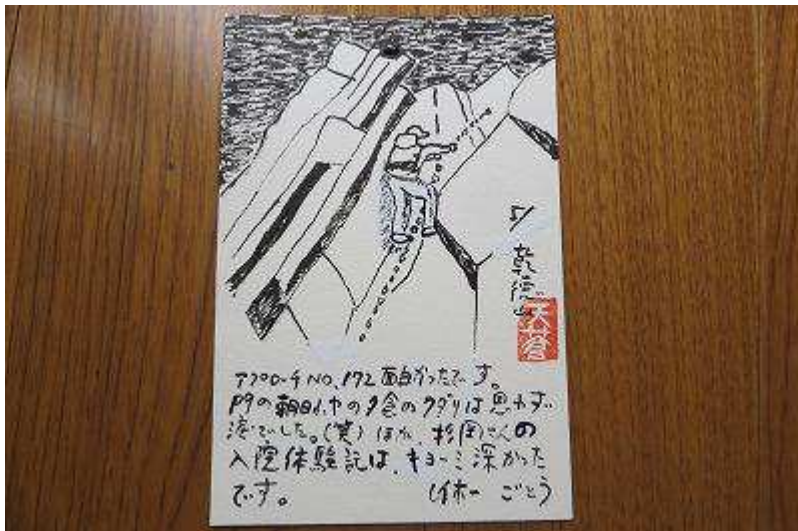 5/
乾徳山
天蒼
アプローチNO.172面白かったです。
P9の朝日小ヤの夕食のクダリは思わず
涙でした。(笑) ほか、杉田さんの
入院体験記は、キョーミ深かった
です。 ごとう